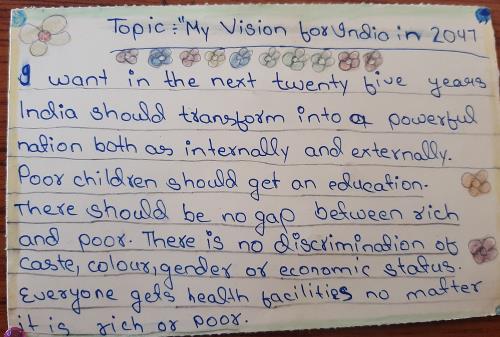 Topic :"My Vision for India in 2047
I want in the next twenty five years
India should transform into a powerful
nation both as internally and externally.
Poor children should get an education.
There should be no gap between rich
and poor. There is no discrimination of
caste, colour, gender or economic status.
Everyone gets health facilities no matter
it is rich or poor.